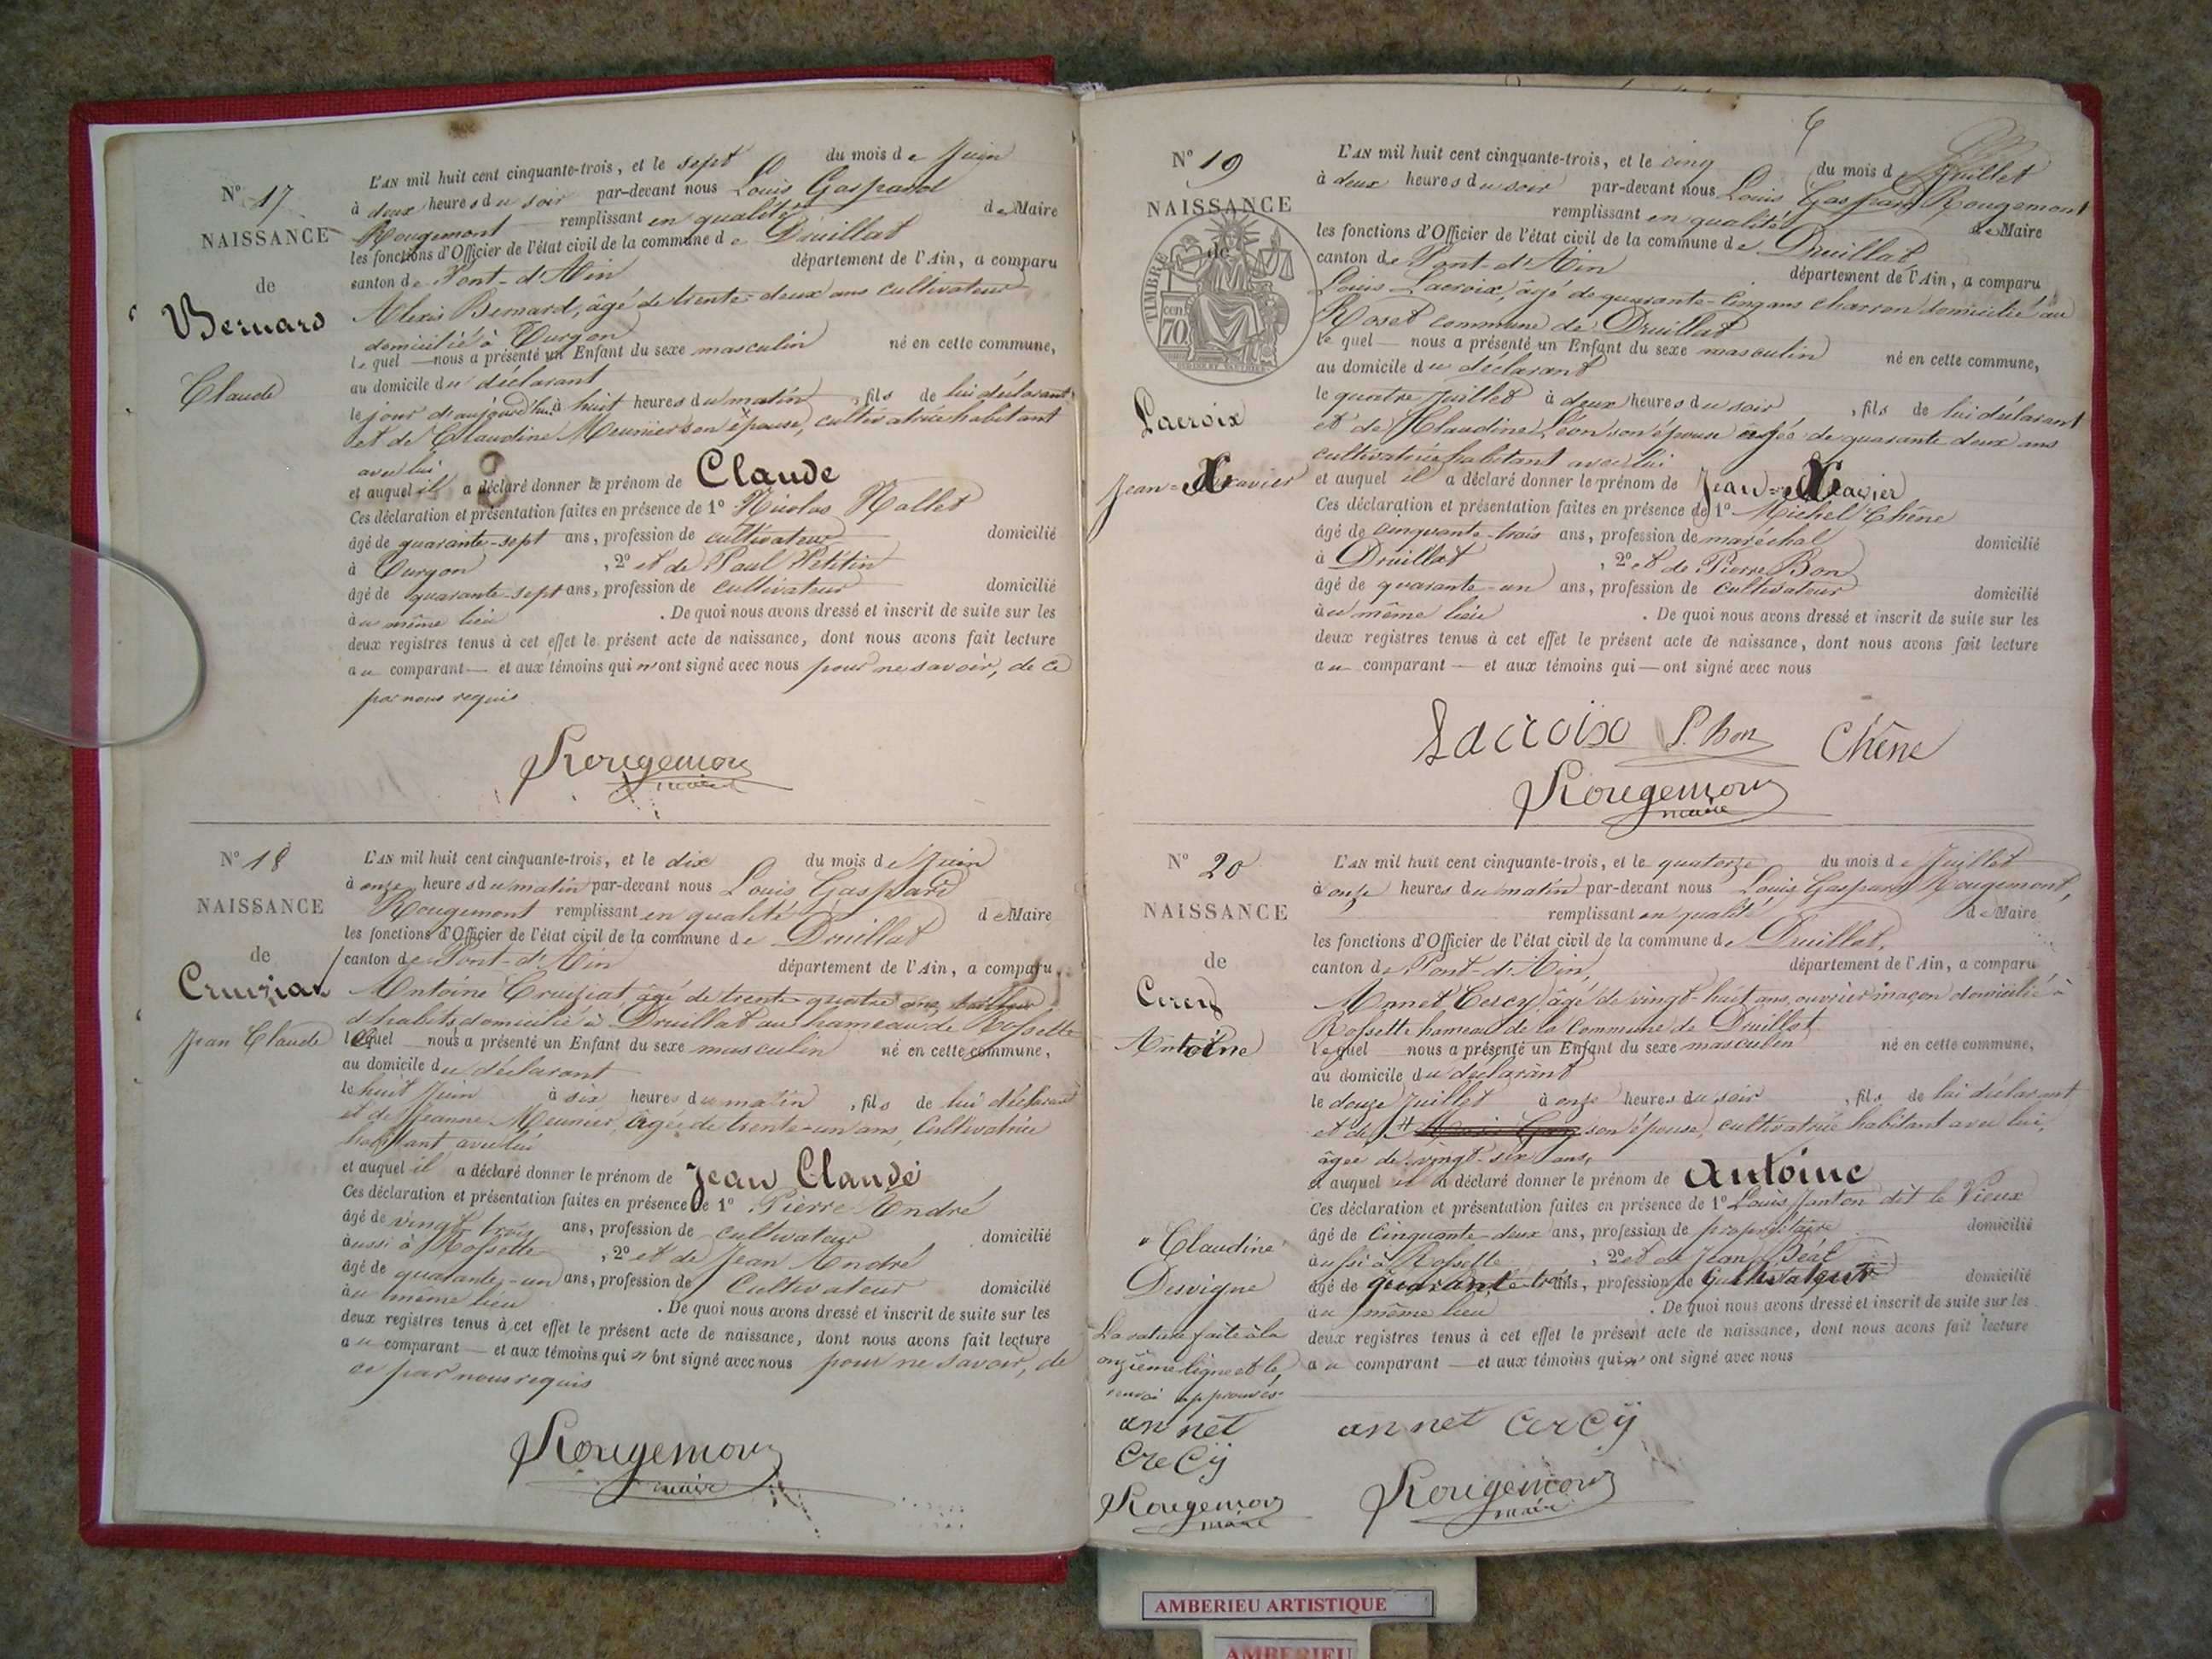 N° 17
NAISSANCE
de
Bernard
Claude
L'AN mil huit cent cinquante-trois, et le sept du mois de Juin
à deux heures du soir par-devant nous Louis Gaspard
Rougemont remplissant en qualité de Maire
les fonctions d'Officier de l'état civil de la commune de Druillat
canton de Pont-d'Ain département de l'Ain, a comparu
Alexis Bernard, âgé de trente-deux ans cultivateur
domicilié à Turgon
lequel nous a présenté un Enfant du sexe masculin né en cette commune,
au domicile du déclarant
le jour d'aujourd'hui à huit heures du matin, fils de lui déclarant
et de Claudine Meunier son épouse, cultivatrice habitant
avec lui
et auquel il a déclaré donner le prénom de Claude
Ces déclaration et présentation faites en présence de 1° Nicolas Nallet
âgé de quarante-sept ans, profession de cultivateur domicilié
à Turgon, 2° et de Paul Petitin
âgé de quarante-sept ans, profession de cultivateur domicilié
au même lieu. De quoi nous avons dressé et inscrit de suite sur les
deux registres tenus à cet effet le présent acte de naissance, dont nous avons fait lecture
au comparant et aux témoins qui n'ont signé avec nous pour ne savoir, de ce
par nous requis
Rougemont
maire
N° 18
NAISSANCE
de
Cruiziat
Jean Claude
L'AN mil huit cent cinquante-trois, et le dix du mois de Juin
à onze heures du matin par-devant nous Louis Gaspard
Rougemont remplissant en qualité de Maire
les fonctions d'Officier de l'état civil de la commune de Druillat
canton de Pont-d'Ain département de l'Ain, a comparu
Antoine Cruiziat âgé de trente-quatre ans tailleur
d'habits domicilié à Druillat au hameau de Rossette
lequel nous a présenté un Enfant du sexe masculin né en cette commune,
au domicile du déclarant
le huit Juin à six heures du matin, fils de lui déclarant
et de Jeanne Meunier, âgée de trente-un ans, Cultivatrice
habitant avec lui
et auquel il a déclaré donner le prénom de Jean Claude
Ces déclaration et présentation faites en présence de 1° Pierre André
âgé de vingt-trois ans, profession de cultivateur domicilié
aussi à Rossette, 2° et de Jean André
âgé de quarante-un ans, profession de Cultivateur domicilié
au même lieu. De quoi nous avons dressé et inscrit de suite sur les
deux registres tenus à cet effet le présent acte de naissance, dont nous avons fait lecture
au comparant et aux témoins qui n'ont signé avec nous pour ne savoir, de
ce par nous requis
Rougemont
maire
6
N° 19
NAISSANCE
de
TIMBRE
cen 70
Lacroix
Jean-Xavier
L'AN mil huit cent cinquante-trois, et le cinq du mois d Juillet
à deux heures du soir par-devant nous Louis Gaspard Rougemont
remplissant en qualité de Maire
les fonctions d'Officier de l'état civil de la commune de Druillat
canton de Pont-d'Ain département de l'Ain, a comparu
Louis Lacroix, âgé de quarante-cinq ans charron domicilié au
Roset commune de Druillat
lequel nous a présenté un Enfant du sexe masculin né en cette commune,
au domicile du déclarant
le quatre Juillet à deux heures du soir, fils de lui déclarant
et de Claudine Léon son épouse âgée de quarante deux ans
cultivatrice habitant avec lui
et auquel il a déclaré donner le prénom de Jean-Xavier
Ces déclaration et présentation faites en présence de 1° Michel Chêne
âgé de cinquante-trois ans, profession de maréchal domicilié
à Druillat, 2° et de Pierre Bon
âgé de quarante-un ans, profession de cultivateur domicilié
au même lieu. De quoi nous avons dressé et inscrit de suite sur les
deux registres tenus à cet effet le présent acte de naissance, dont nous avons fait lecture
au comparant et aux témoins qui ont signé avec nous
Lacroix P. Bon Chêne
Rougemont
maire
N° 20
NAISSANCE
de
Cercy
Antoine
L'AN mil huit cent cinquante-trois, et le quatorze du mois de Juillet
à onze heures du matin par-devant nous Louis Gaspard Rougemont,
remplissant en qualité de Maire
les fonctions d'Officier de l'état civil de la commune de Druillat,
canton de Pont-d'Ain, département de l'Ain, a comparu
Annet Cercy, âgé de vingt-huit ans, ouvrier maçon domicilié à
Rossette hameau de la Commune de Druillat
lequel nous a présenté un Enfant du sexe masculin né en cette commune,
au domicile du déclarant
le douze Juillet à onze heures du soir, fils de lui déclarant
et de # son épouse, cultivatrice habitant avec lui,
âgée de vingt-six ans,
et auquel il a déclaré donner le prénom de Antoine
Ces déclaration et présentation faites en présence de 1° Louis Janton dit le Vieux
âgé de Cinquante-deux ans, profession de propriétaire domicilié
aussi à Rossette, 2° et de Jean Béal
âgé de quarante-trois ans, profession de cultivateur domicilié
au même lieu. De quoi nous avons dressé et inscrit de suite sur les
deux registres tenus à cet effet le présent acte de naissance, dont nous avons fait lecture
au comparant et aux témoins qui n'ont signé avec nous
" Claudine
Desvigne
La rature faite à la
onzième ligne et le
renvoi approuvés
annet
creCÿ
Rougemont
maire
annet cercÿ
Rougemont
maire
AMBERIEU ARTISTIQUE
AMBERIEU